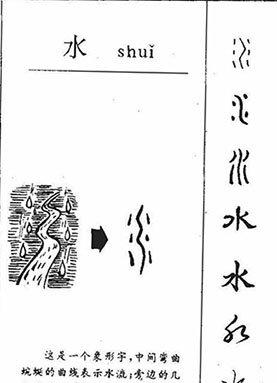 水 shuǐ
这是一个象形字,中间弯曲
蜿蜒的曲线表示水流;旁边的几
水
水
水